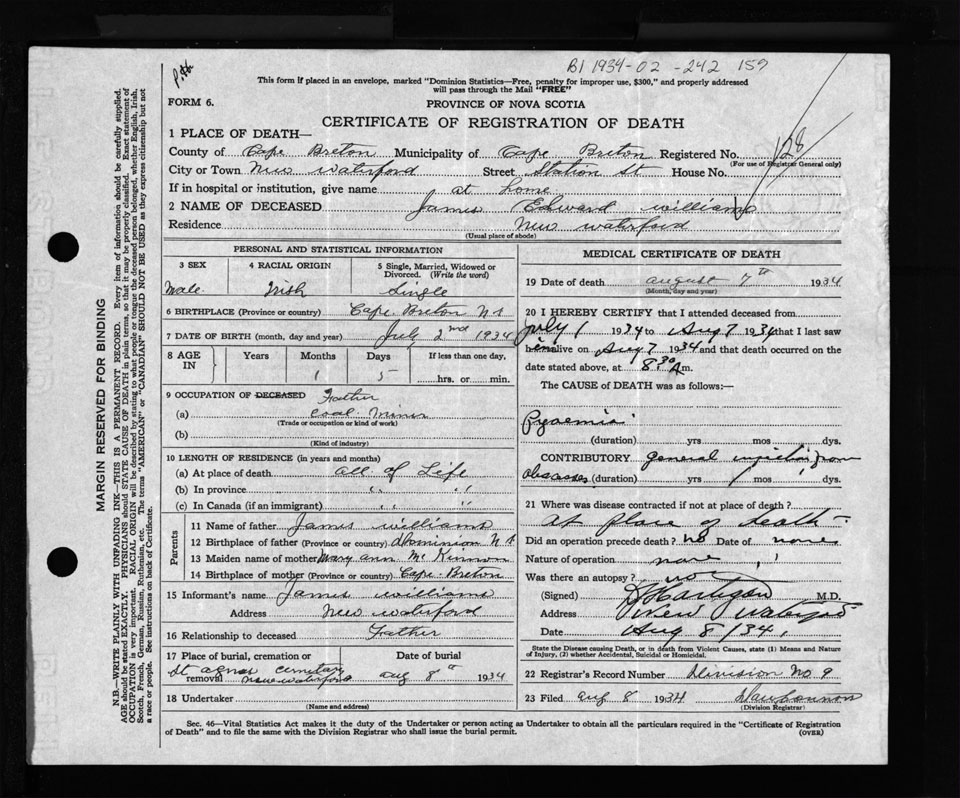 B1 1934-02-242 159
This form if placed in an envelope, marked "Dominion Statistics—Free, penalty for improper use, $300," and properly addressed
will pass through the Mail "FREE"
FORM 6. PROVINCE OF NOVA SCOTIA
CERTIFICATE OF REGISTRATION OF DEATH
128
1 PLACE OF DEATH—
County of Cape Breton Municipality of Cape Breton Registered No.
(For use of Registrar General only)
City or Town New Waterford Street Station St House No.
If in hospital or institution, give name at home
2 NAME OF DECEASED James Edward Williams
Residence New Waterford
(Usual place of abode)
PERSONAL AND STATISTICAL INFORMATION
3 SEX 4 RACIAL ORIGIN 5 Single, Married, Widowed or
Divorced. (Write the word)
Male Irish Single
6 BIRTHPLACE (Province or country) Cape Breton N S
7 DATE OF BIRTH (month, day and year) July 2nd 1934
8 AGE IN Years Months Days If less than one day,
1 5 hrs. or min.
9 OCCUPATION OF DECEASED Father
(a) Coal Miner
(Trade or occupation or kind of work)
(b)
(Kind of industry)
10 LENGTH OF RESIDENCE (in years and months)
(a) At place of death all of Life
(b) In province " "
(c) In Canada (if an immigrant) " "
Parents
11 Name of father James Williams
12 Birthplace of father (Province or country) Dominion N S
13 Maiden name of mother Mary Ann McKinnon
14 Birthplace of mother (Province or country) Cape Breton
15 Informant's name James Williams
Address New Waterford
16 Relationship to deceased Father
17 Place of burial, cremation or removal Date of burial
St Agnes Cemetary
New Waterford Aug 8th 1934
18 Undertaker
(Name and address)
MEDICAL CERTIFICATE OF DEATH
19 Date of death August 7th 1934
(Month, day and year)
20 I HEREBY CERTIFY that I attended deceased from
July 1 1934 to Aug 7 1934 that I last saw
him alive on Aug 7 1934 and that death occurred on the
date stated above, at 8 30 A m.
The CAUSE of DEATH was as follows:—
Pyaemia
(duration) yrs mos dys.
CONTRIBUTORY general infection from
abscesses (duration) yrs mos dys.
21 Where was disease contracted if not at place of death?
At place of death
Did an operation precede death? no Date of none
Nature of operation none
Was there an autopsy? no
(Signed) M.D.
Address New Waterford
Date Aug 8/34
State the Disease Causing Death, or in death from Violent Causes, state (1) Means and Nature
of Injury, (2) whether Accidental, Suicidal or Homicidal.
22 Registrar's Record Number Division No. 9
23 Filed Aug 8 1934
(Division Registrar)
Sec. 46—Vital Statistics Act makes it the duty of the Undertaker or person acting as Undertaker to obtain all the particulars required in the "Certificate of Registration
of Death" and to file the same with the Division Registrar who shall issue the burial permit. (OVER)
MARGIN RESERVED FOR BINDING
N.B.—WRITE PLAINLY WITH UNFADING INK—THIS IS A PERMANENT RECORD. Every item of information should be carefully supplied.
AGE should be stated EXACTLY. PHYSICIANS should STATE CAUSE OF DEATH in plain terms, so that it may be properly classified. Exact statement of
OCCUPATION is very important. RACIAL ORIGIN will be described by stating to what people or tongue the deceased person belonged, whether English, Irish,
Scotch, French, German, Russian, Ruthenian, etc. The terms "AMERICAN" or "CANADIAN" SHOULD NOT BE USED as they express citizenship but not
a race or people. See instructions on back of Certificate.